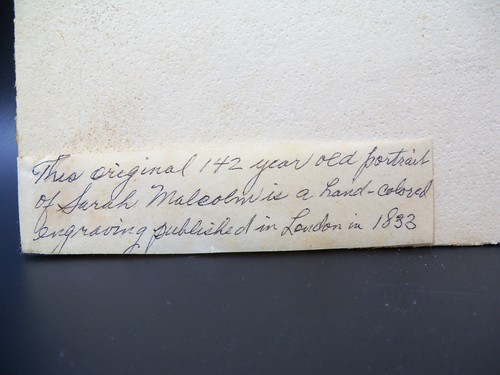 This original 142 year old portrait
of Sarah Malcolm is a hand-colored
engraving published in London in 1833